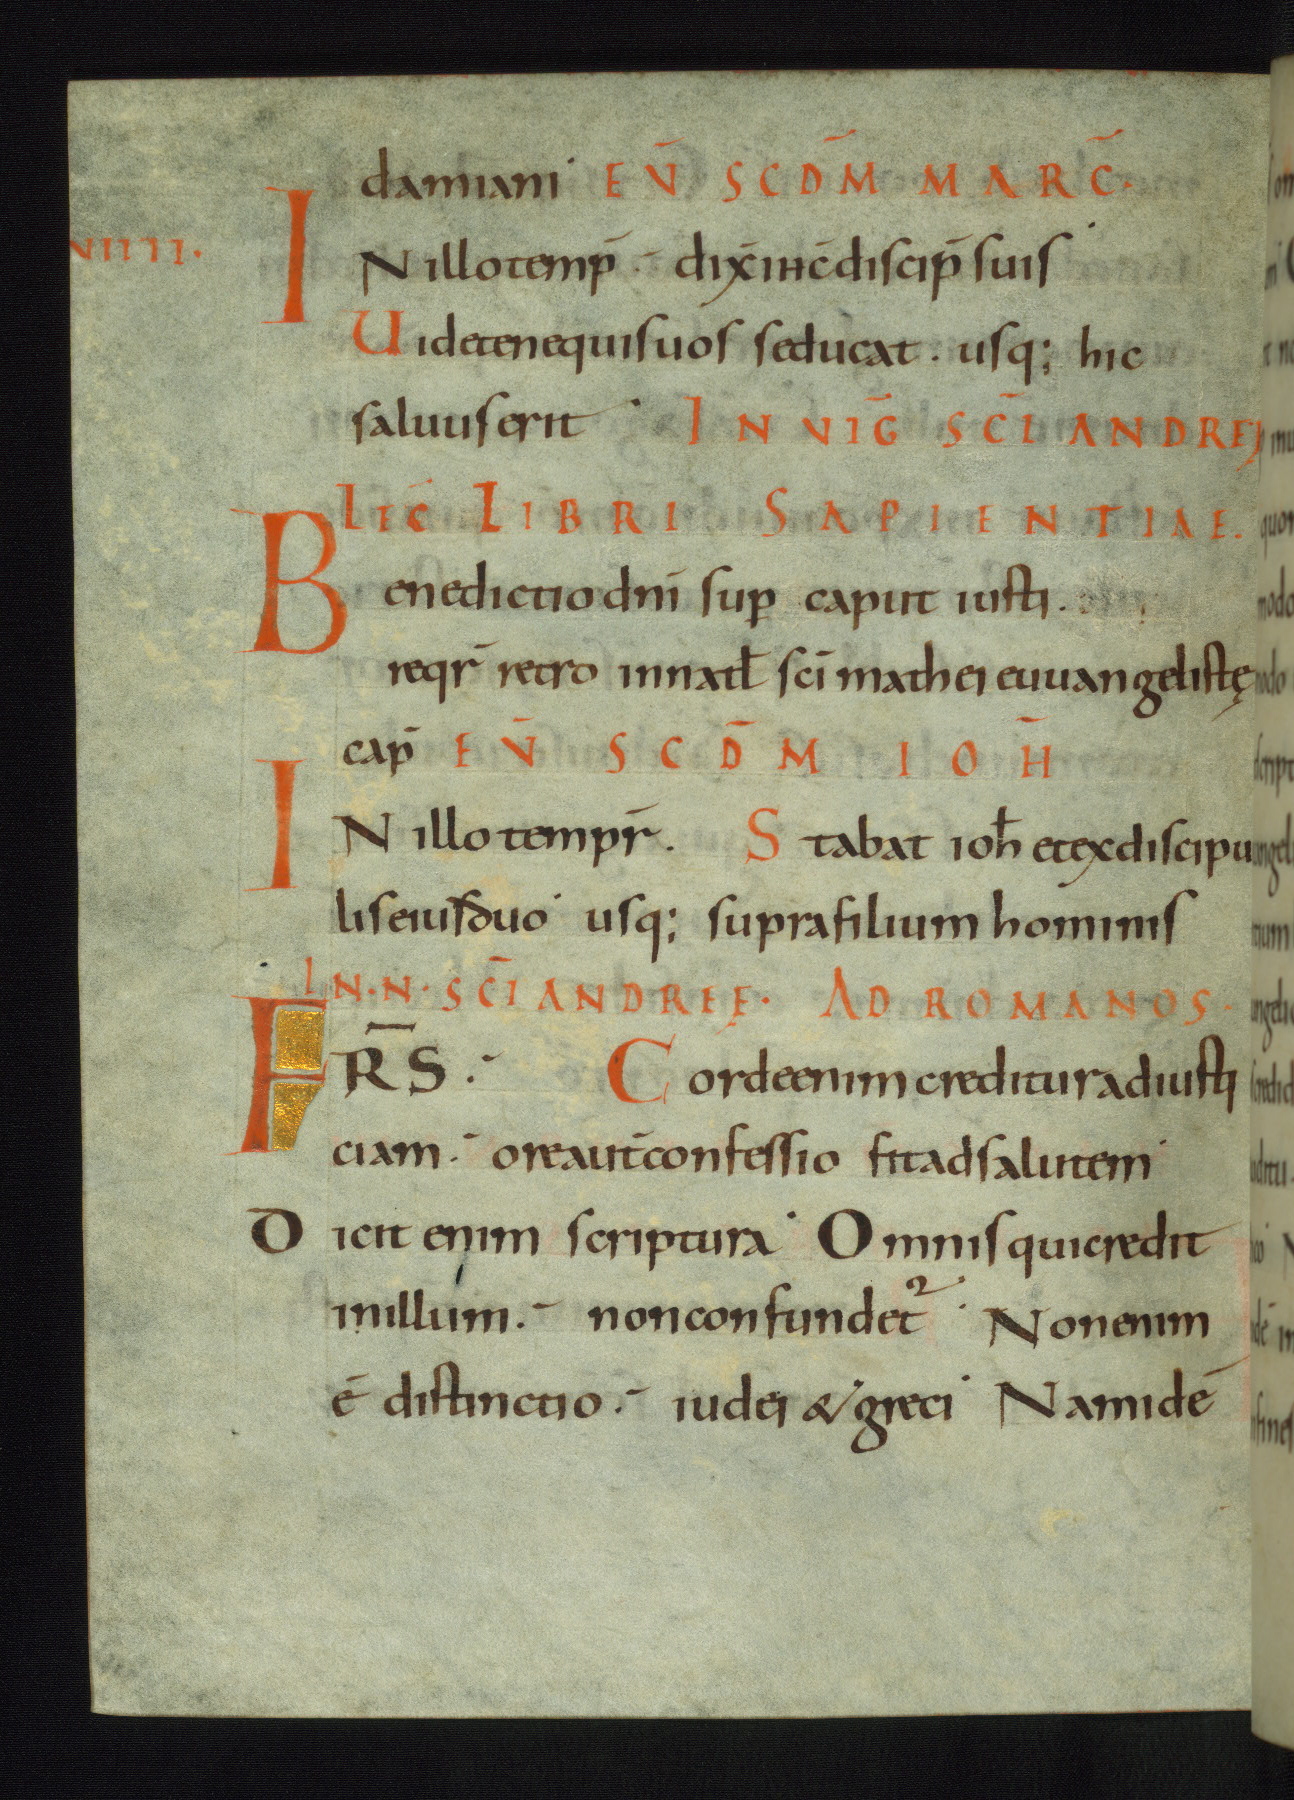 damiani EV̄ SCDM̄ MARC̄.
NIIII.
IN illo temp̄. dix̄ ihc̄ discip̄ suis
Uidete nequis uos seducat. usq; hic
saluus erit IN VIḠ SC̄I ANDREĘ
LEC̄ LIBRI SAPIENTIAE.
Benedictio dnī sup caput iusti.
reqr̄ retro in natl̄ scī mathei euuangelistę
cap̄ EV̄ SCD̄M IOH̄
IN illo tempr̄. Stabat ioh̄ et ex discipu
lis eius duo usq; supra filium hominis
IN.N. SC̄I ANDREĘ. AD ROMANOS.
FR̄S. Corde enim creditur ad iusti
ciam. ore aut̄ confessio fit ad salutem
Dicit enim scriptura Omnis qui credit
in illum. non confundet᷑ Non enim
ē distinctio. iudei & greci Nam idē